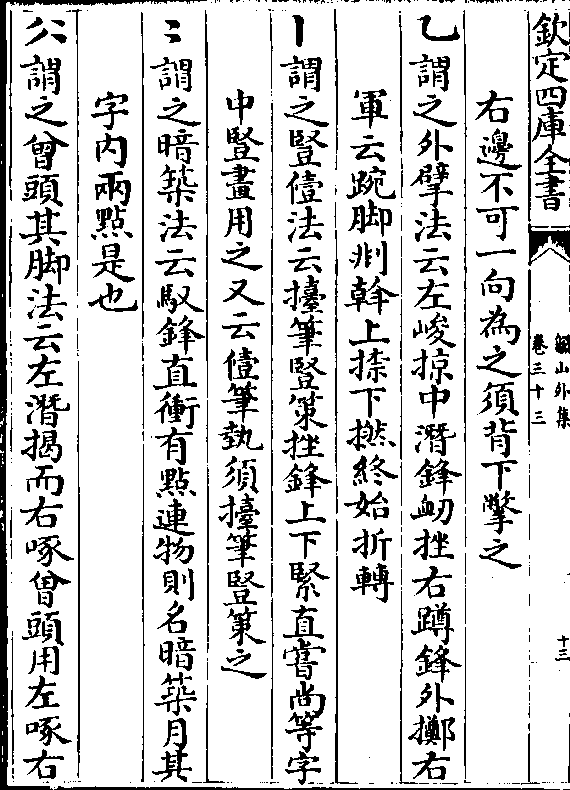 欽定四庫全書
弇山外集
卷三十三
十三
右邊不可一向為之須背下撆之
乙謂之外擘法云左峻掠中潛鋒衂挫右蹲鋒外擲右
軍云踠脚斜斡上捺下撚終始折轉
丨謂之豎㒑法云擡筆豎策挫鋒上下緊直嘗尚等字
中豎畫用之又云㒑筆執須擡筆豎策之
：謂之暗築法云馭鋒直衝有點連物則名暗築月其
字内兩點是也
八謂之曾頭其脚法云左潛揭而右啄曾頭用左啄右